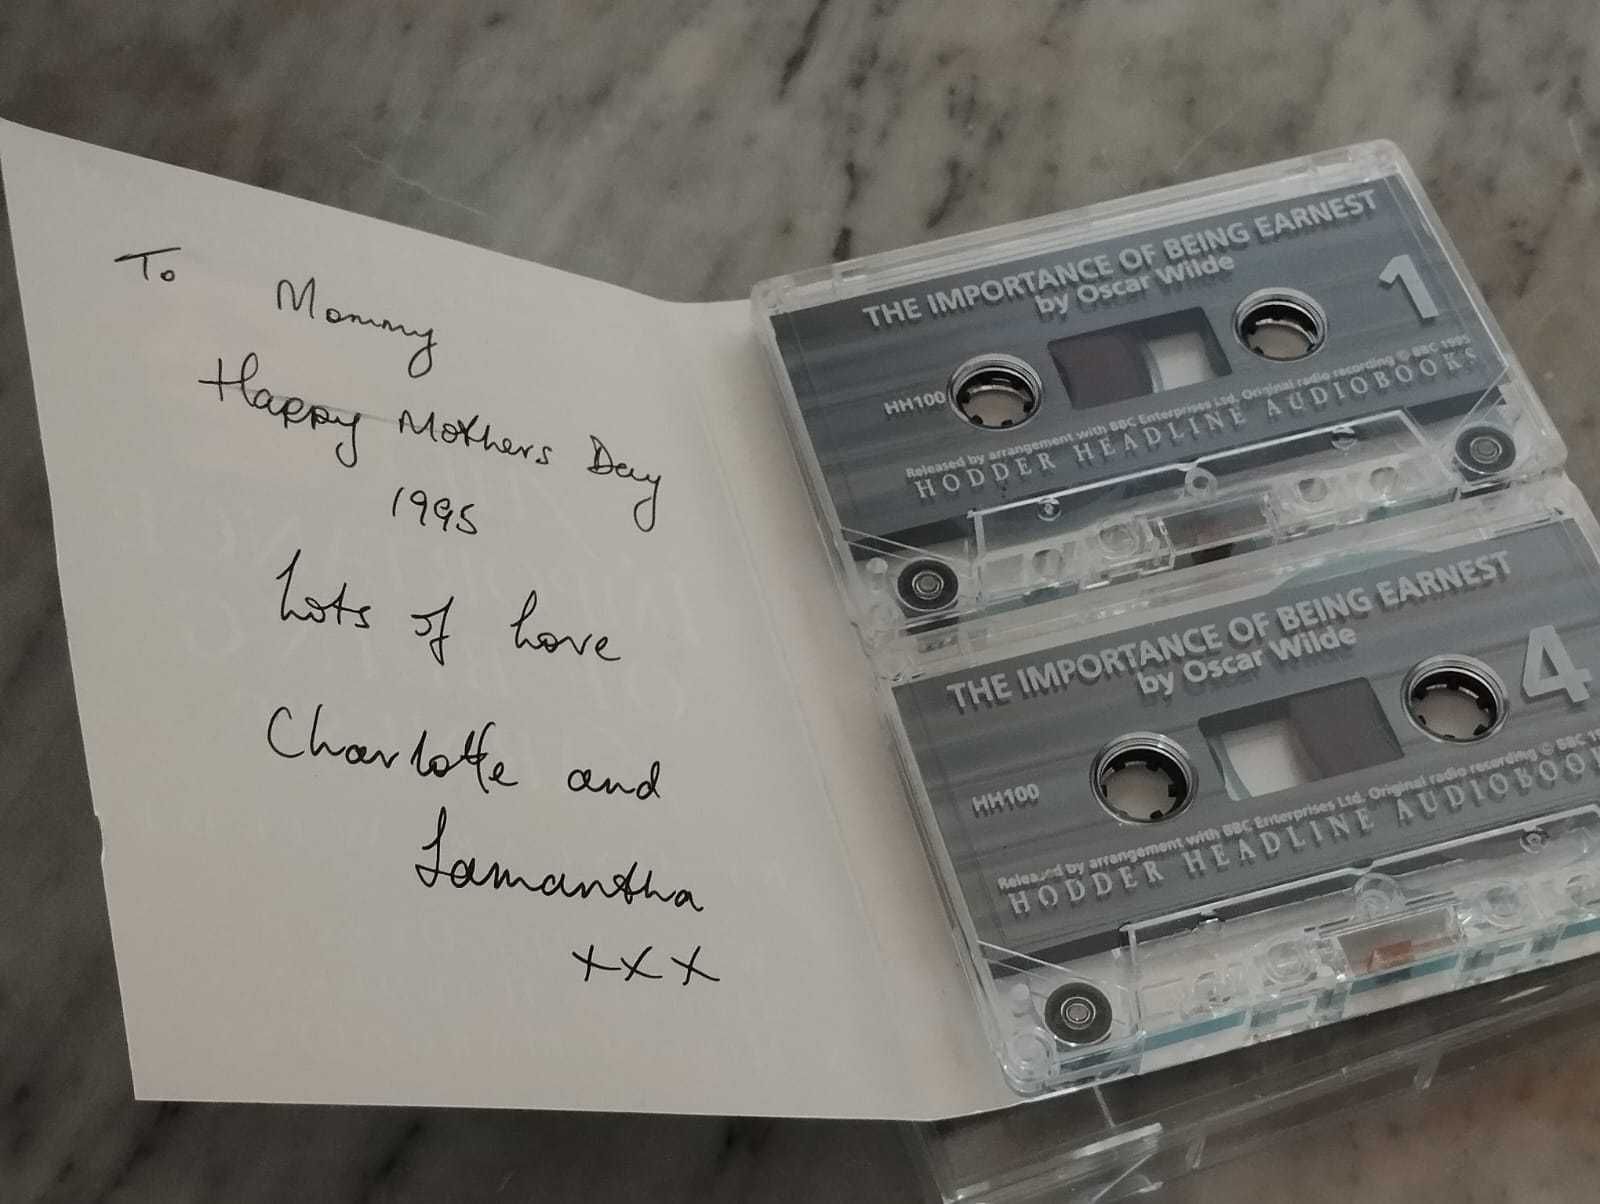 To Mommy
Happy Mothers Day
1995
Lots of Love
Charlotte and
Samantha
xxx
THE IMPORTANCE OF BEING EARNEST
by Oscar Wilde
1
HH100
Released by arrangement with BBC Enterprises Ltd. Original radio recording © BBC 1995
HODDER HEADLINE AUDIOBOOKS
THE IMPORTANCE OF BEING EARNEST
by Oscar Wilde
4
HH100
Released by arrangement with BBC Enterprises Ltd. Original radio recording © BBC
HODDER HEADLINE AUDIOBOO